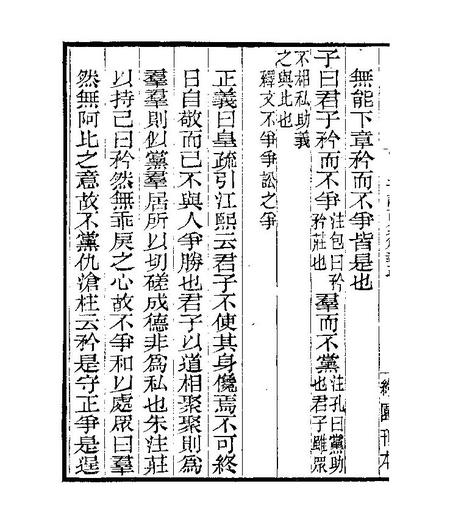 刊本
無能下章矜而不爭皆是也
子曰君子矜而不爭注包曰矜矜莊也羣而不黨注孔曰黨助也君子雖眾
不相私助義
之與比也
釋文不爭爭訟之爭
正義曰皇疏引江熙云君子不使其身儳焉不可終
日自敬而已不與人爭勝也君子以道相聚聚則爲
羣羣則似黨羣居所以切磋成德非爲私也朱注莊
以持己曰矜然無乖戾之心故不爭和以處眾曰羣
然無阿比之意故不黨仇滄柱云矜是守正爭是逞